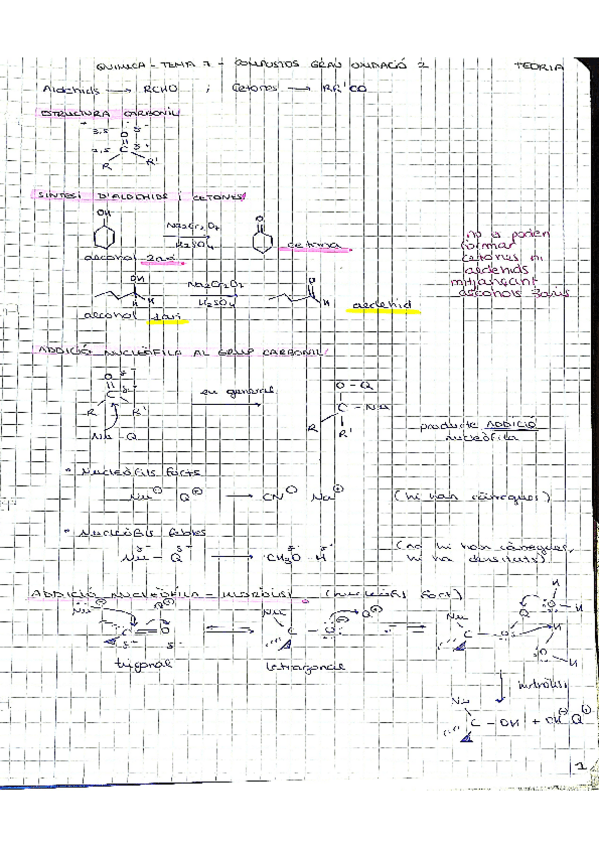 QUIMICA - TEMA 7 - COMPOSTOS GRAU OXIDACIÓ 2 TEORIA
Aldehids → RCHO ; Cetones → RR'CO
ESTRUCTURA CARBONIL
3,5 O δ-
2,5 C δ+
R R'
SINTESI D'ALDEHIDS i CETONES
OH
O
Na2Cr2O7
H2SO4
cetona
alcohol 2ari
no es poden
formar
cetones ni
aldehids
mitjançant
alcohols 3aris
OH
H
H
Na2Cr2O7
H2SO4
O
H
alcohol 1ari
aldehid
ADDICIÓ NUCLEÒFILA AL GRUP CARBONIL
O δ-
C δ+
R R'
Nu - Q
en general
O - Q
C - Nu
R
R'
producte ADDICIÓ
nucleòfila
• Nucleòfils forts
Nu⊖ Q⊕ → CN⊖ Na⊕ (hi han càrregues)
• Nucleòfils febles
δ- δ+
Nu - Q → CH3O - H (no hi han càrregues,
hi ha densitats)
ADDICIÓ NUCLEÒFILA - HIDRÒLISI (nucleòfil fort)
Nu⊖ Q⊕
C = O
δ+ δ-
trigonal
Nu Q⊕
C - O⊖
tetragonal
Nu
C - O
Q
O - H
H
H
O - H
hidròlisi
Nu
C - OH + OH⊖ Q⊕
1